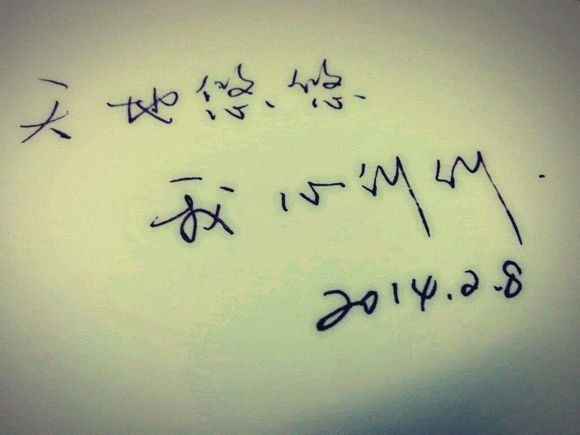 天地悠悠.
我心
2014.2.8